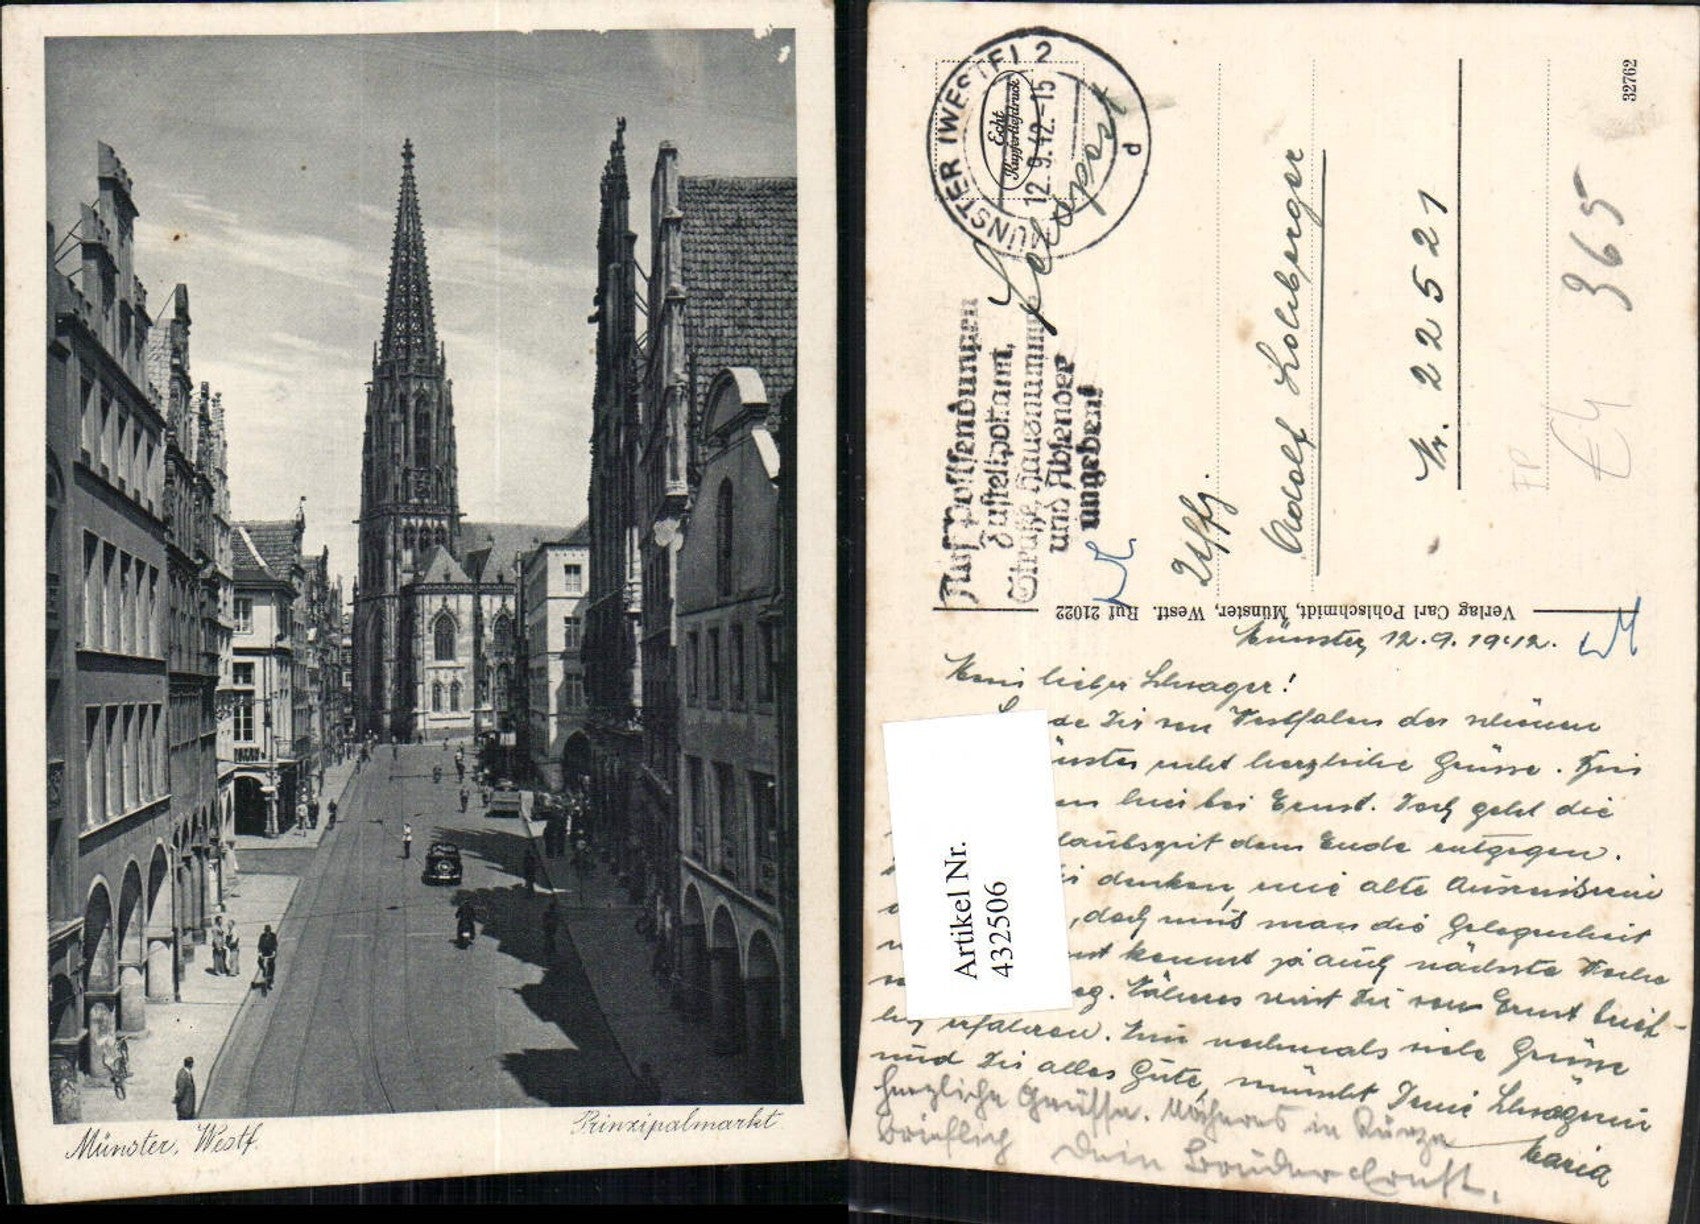 Münster, Westf.
Prinzipalmarkt
MÜNSTER (WESTF) 2
12.9.42.-15
d
Echt
Kupfertiefdruck
Feldpost
Auf Postsendungen
Zustellpostamt,
Straße, Hausnummer
und Absender
angeben!
Uffz.
Adolf
Nr. 22521
32762
365
€4
FP
Verlag Carl Pohlschmidt, Münster, Westf. Ruf 21022
Münster, 12.9.1942.
Mein lieber Schwager!
Dir von Westfalen der schönen
recht herzliche Grüsse. Bin
hier bei Ernst. Doch geht die
laubszeit dem Ende entgegen.
denken, eine alte
, doch muß man die Gelegenheit
kommt ja auch nächste Woche
Näheres wirst Du von Ernst brief-
erfahren. Nun nochmals viele Grüsse
und Dir alles Gute, wünscht Deine Schwägerin
Maria
herzliche Grüsse. Näheres in Kürze
brieflich Dein Bruder Ernst.
Artikel Nr.
432506